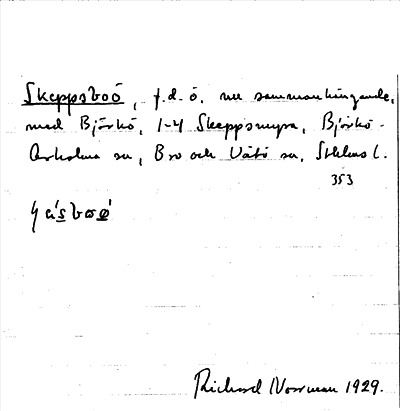 Skeppsboö, f.d. ö, nu sammanhängande,
med Björkö, 1-4 Skeppsmyra, Björkö-
Arholma sn, Bro och Vätö sn, Sthlms l.
353
Richard Norrman 1929.